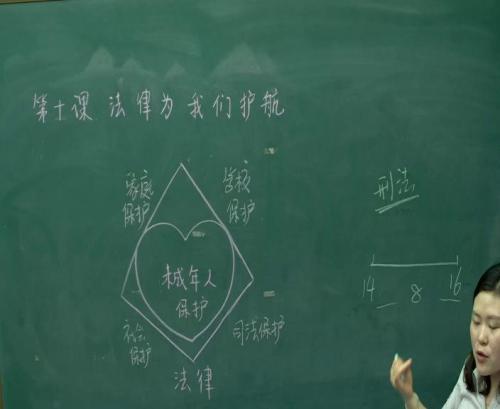 第十课 法律为我们护航
家庭
保护
学校
保护
未成年人
保护
社会
保护
司法保护
法律
刑法
14 8 16